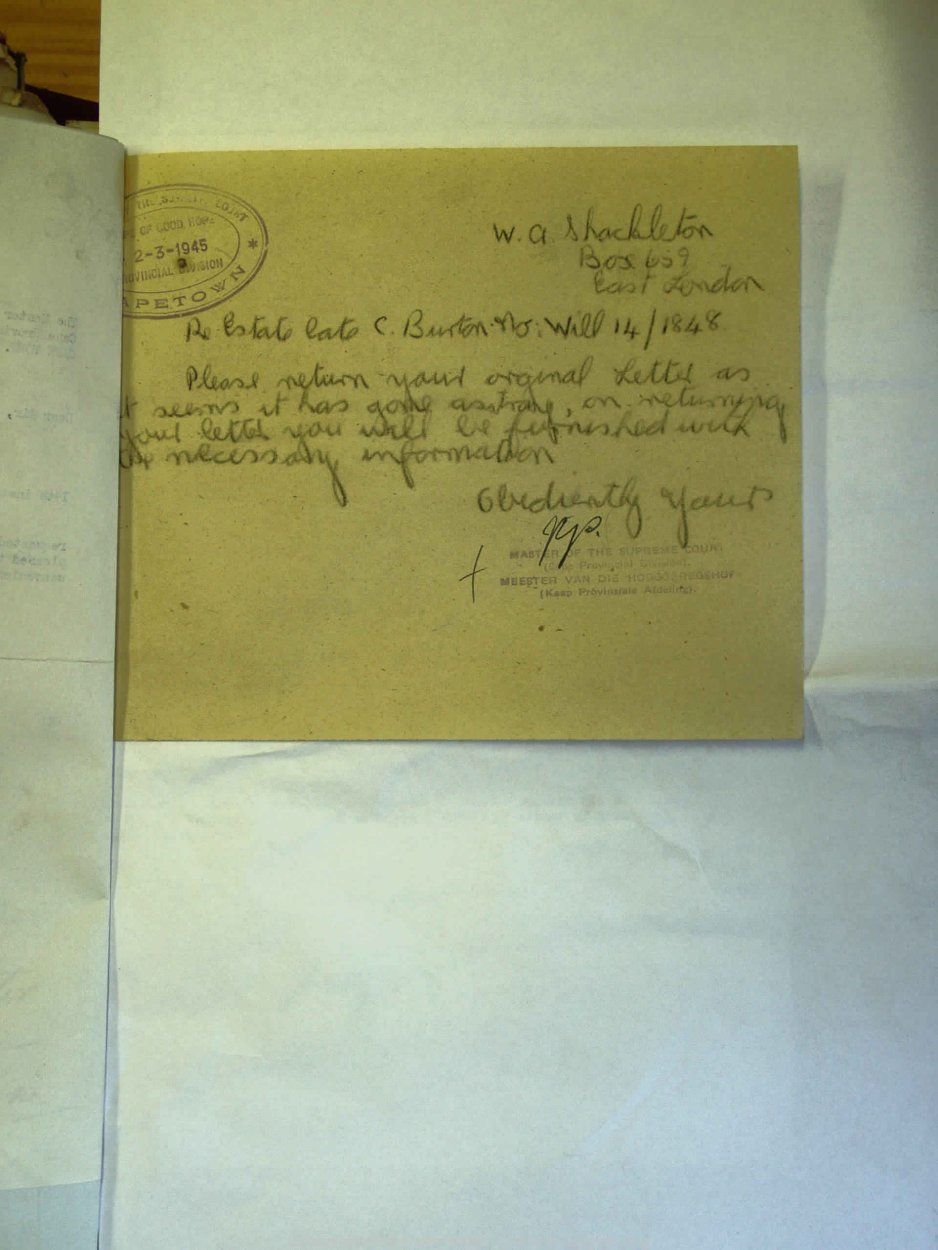 THE SUPREME COURT
OF GOOD HOPE
2-3-1945
PROVINCIAL DIVISION
CAPETOWN *
W. A. Shackleton
Box 659
East London
Re Estate Late C. Burton No: Will 14/1848
Please return your orginal Letter as
it seems it has gone astray, on returning
your letter you will be furnished with
the necessary information
Obediently Yours
pp.
MASTER OF THE SUPREME COURT
(Cape Provincial Division).
MEESTER VAN DIE HOOGGEREGSHOF
(Kaap Provinsiale Afdeling).